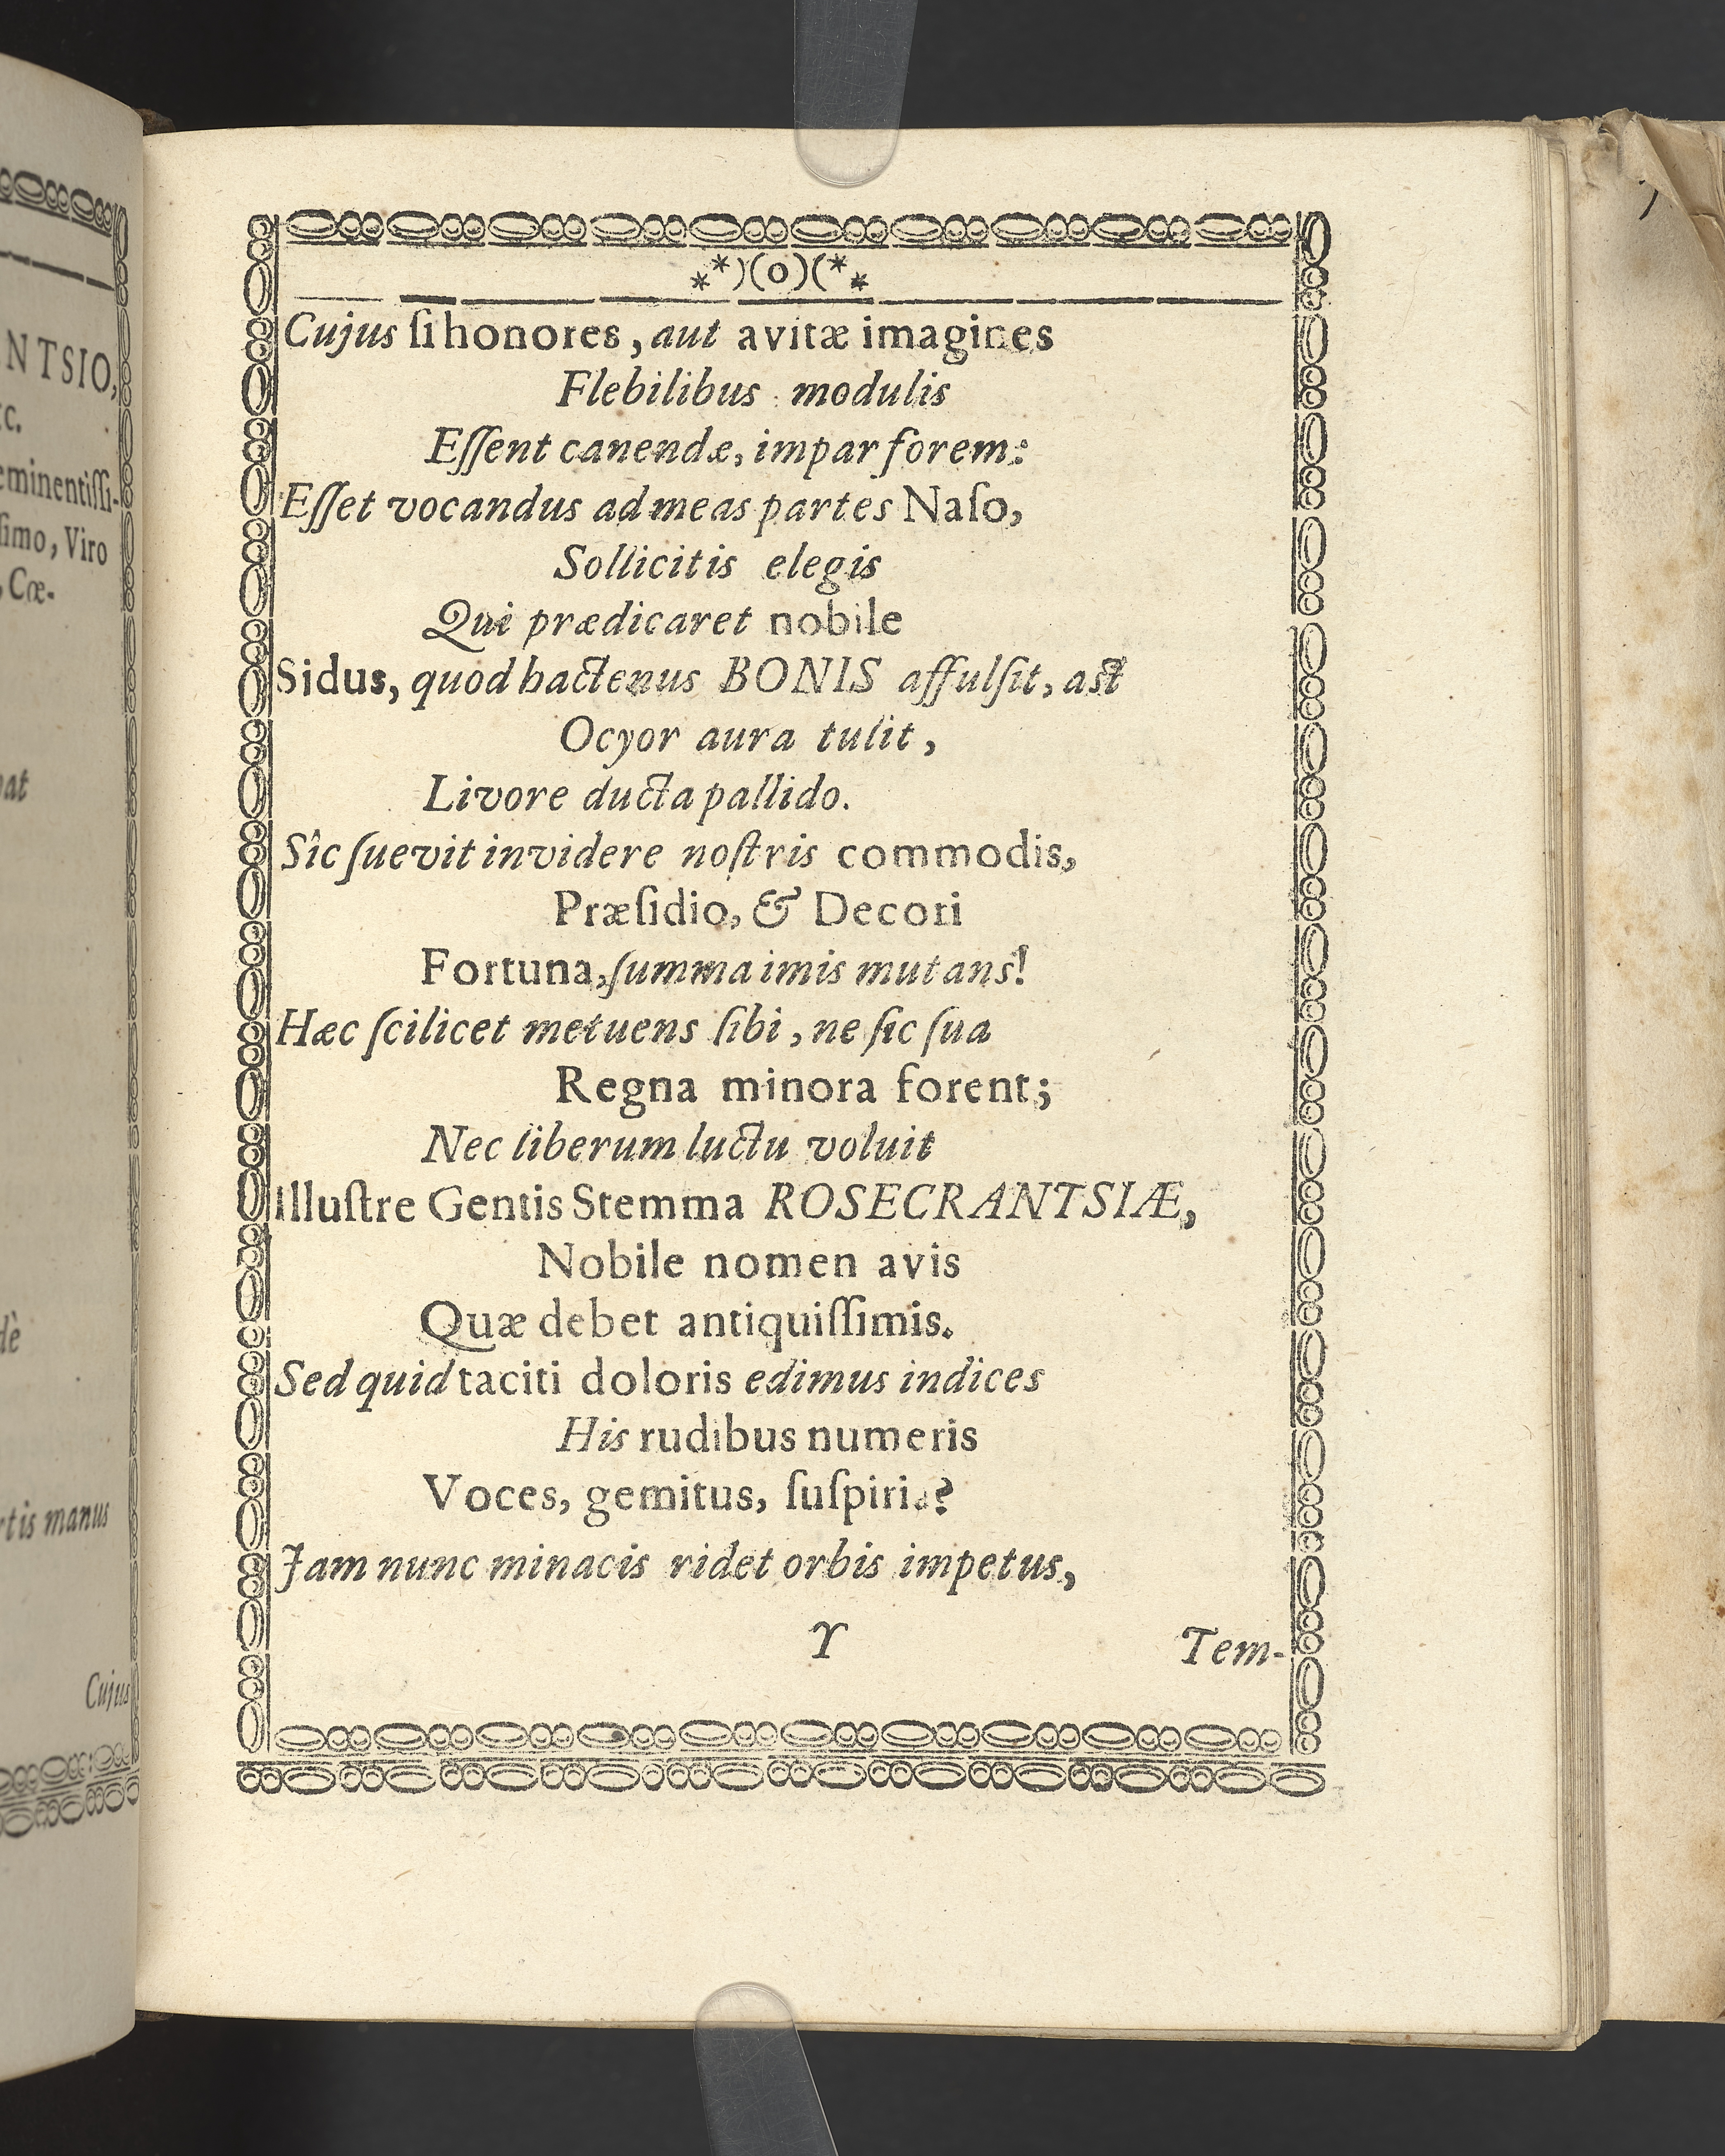 NTSIO,
eminentiſſi-
ſimo, Viro
Cœ-
rtis manus
Cujus
**)(o)(**
Cujus ſi honores, aut avitæ imagines
Flebilibus modulis
Eſſent canendæ, impar forem:
Eſſet vocandus ad meas partes Naſo,
Sollicitis elegis
Qui prædicaret nobile
Sidus, quod hactenus BONIS affulſit, aſt
Ocyor aura tulit,
Livore ducta pallido.
Sîc ſuevit invidere noſtris commodis,
Præſidio, & Decori
Fortuna, ſumma imis mutans!
Hæc ſcilicet metuens ſibi, ne ſic ſua
Regna minora forent;
Nec liberum luctu voluit
Illuſtre Gentis Stemma ROSECRANTSIÆ,
Nobile nomen avis
Quæ debet antiquiſſimis.
Sed quid taciti doloris edimus indices
His rudibus numeris
Voces, gemitus, ſuſpiria?
Jam nunc minacis ridet orbis impetus,
Y
Tem-